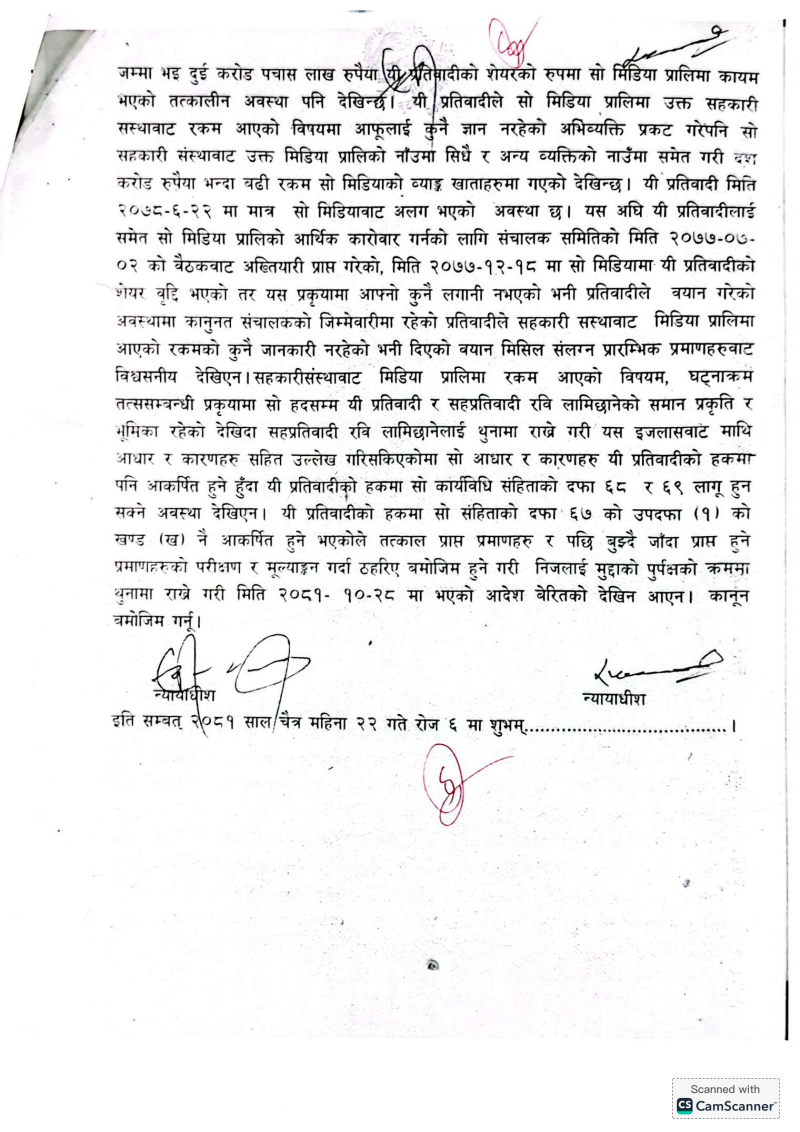 जम्मा भइ दुई करोड पचास लाख रुपैया यी प्रतिवादीको शेयरको रुपमा सो मिडिया प्रालिमा कायम
भएको तत्कालीन अवस्था पनि देखिन्छ। यी प्रतिवादीले सो मिडिया प्रालिमा उक्त सहकारी
सस्थावाट रकम आएको विषयमा आफूलाई कुनै ज्ञान नरहेको अभिव्यक्ति प्रकट गरेपनि सो
सहकारी संस्थावाट उक्त मिडिया प्रालिको नाँउमा सिधै र अन्य व्यक्तिको नाउँमा समेत गरी दश
करोड रुपैया भन्दा वढी रकम सो मिडियाको व्याङ्क खाताहरुमा गएको देखिन्छ। यी प्रतिवादी मिति
२०७८-६-२२ मा मात्र सो मिडियावाट अलग भएको अवस्था छ। यस अघि यी प्रतिवादीलाई
समेत सो मिडिया प्रालिको आर्थिक कारोवार गर्नको लागि संचालक समितिको मिति २०७७-०७-
०२ को वैठकवाट अख्तियारी प्राप्त गरेको, मिति २०७७-१२-१८ मा सो मिडियामा यी प्रतिवादीको
शेयर वृद्दि भएको तर यस प्रकृयामा आफ्नो कुनै लगानी नभएको भनी प्रतिवादीले वयान गरेको
अवस्थामा कानुनत संचालकको जिम्मेवारीमा रहेको प्रतिवादीले सहकारी सस्थावाट मिडिया प्रालिमा
आएको रकमको कुनै जानकारी नरहेको भनी दिएको वयान मिसिल संलग्न प्रारम्भिक प्रमाणहरुवाट
विश्वसनीय देखिएन। सहकारीसंस्थावाट मिडिया प्रालिमा रकम आएको विषयम, घट्नाक्रम
तत्ससम्वन्धी प्रकृयामा सो हदसम्म यी प्रतिवादी र सहप्रतिवादी रवि लामिछानेको समान प्रकृति र
भूमिका रहेको देखिदा सहप्रतिवादी रवि लामिछानेलाई थुनामा राख्ने गरी यस इजलासवाट माथि
आधार र कारणहरु सहित उल्लेख गरिसकिएकोमा सो आधार र कारणहरु यी प्रतिवादीको हकमा
पनि आकर्षित हुने हुँदा यी प्रतिवादीको हकमा सो कार्यविधि संहिताको दफा ६८ र ६९ लागू हुन
सक्ने अवस्था देखिएन। यी प्रतिवादीको हकमा सो संहिताको दफा ६७ को उपदफा (१) को
खण्ड (ख) नै आकर्षित हुने भएकोले तत्काल प्राप्त प्रमाणहरु र पछि बुझ्दै जाँदा प्राप्त हुने
प्रमाणहरुको परीक्षण र मूल्याङ्कन गर्दा ठहरिए वमोजिम हुने गरी निजलाई मुद्दाको पुर्पक्षको क्रममा
थुनामा राख्ने गरी मिति २०८१- १०-२८ मा भएको आदेश बेरितको देखिन आएन। कानून
वमोजिम गर्नू।
न्यायाधीश न्यायाधीश
इति सम्बत् २०८१ साल चैत्र महिना २२ गते रोज ६ मा शुभम्.....................................।
Scanned with
CS CamScanner